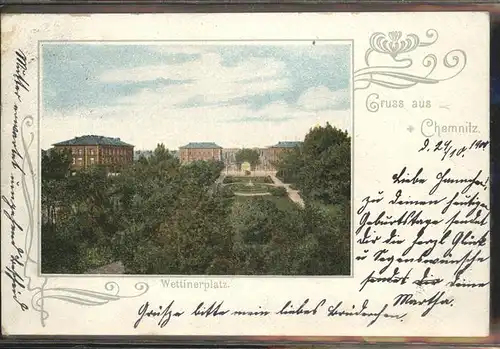 Gruss aus
Chemnitz.
d. 24/10. 1900
Liebe Hannchen,
zu deinem heutigen
Geburtstage sendet
dir die herzl. Glück
u Segenswünsche
sendet dir deine
Martha.
Wettinerplatz.
Grüße bitte mein liebes Brüderchen.
Mutter erwartet